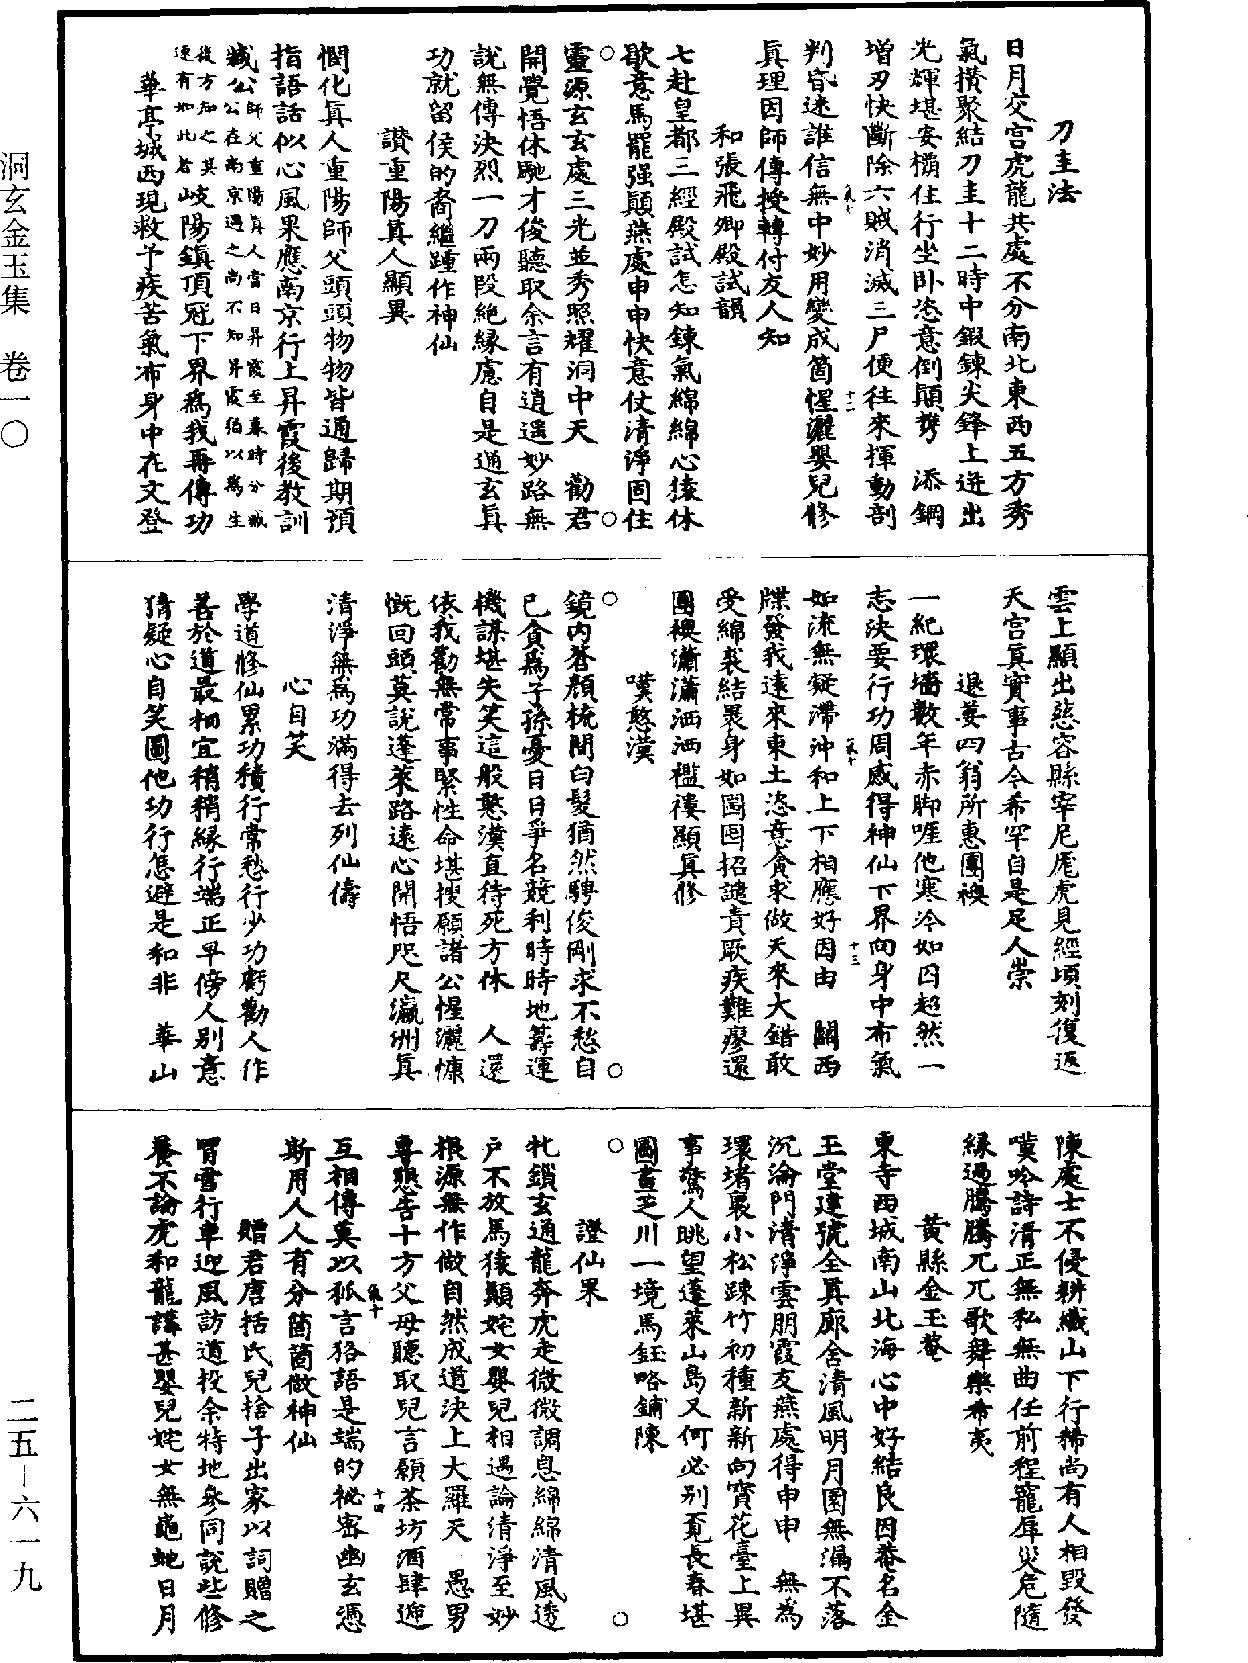 刀圭法
日月交宮虎龍共處不分南北東西五方秀
氣攢聚結刀圭十二時中鍜鍊尖鋒上迸出
光輝堪安櫃住行坐卧恣意倒顛擕　添鋼
增刃快斷除六賊消滅三尸便往來揮動剖
判昏迷誰信無中妙用變成箇惺灑嬰兒修
真理因師傳授轉付友人知
和張飛卿殿試韻
七赴皇都三經殿試怎知鍊氣綿綿心猿休
歇意馬罷强顛燕處申申快意仗清淨固住
靈源玄玄處三光並秀照耀洞中天　勸君
開覺悟休馳才俊聽取余言有逍遥妙路無
說無傳決烈一刀兩段絶緣慮自是通玄真
功就留侯的裔繼踵作神仙
讃重陽真人顯異
憫化真人重陽師父頭頭物物皆通歸期預
指語話似心風果應南京行上昇霞後教訓
臧公師父重陽真人當日昇霞至暮時分臧公在南京遇之尚不知昇霞猶以為生後方知之其速有如此者岐陽鎮頂冠下界為我再傳功
華亭城西現救予疾苦氣布身中在文登
雲上顯出慈容縣宰尼厖虎見經頃刻復返
天宮真實事古今希罕自是足人崇
退姜四翁所惠團襖
一紀環墻數年赤脚啀他寒冷如囚超然一
志決要行功周感得神仙下界向身中布氣
如流無疑滯沖和上下相應好因由　關西
牒發我遠來東土恣意貪求做天來大錯敢
受綿裘結裹身如圄囚招譴責厥疾難瘳還
團襖瀟瀟洒洒襤褸顯真修
嘆憨漢
鏡內蒼顏梳間白髮猶然騁俊剛求不愁自
己貪為子孫憂日日爭名競利時時地籌運
機謀堪失笑這般憨漢直待死方休　人還
依我勸無常事緊性命堪搜願諸公惺灑慷
慨回頭莫說蓬萊路遠心開悟咫尺瀛洲真
清淨無為功滿得去列仙儔
心自笑
學道修仙累功積行常愁行少功虧勸人作
善於道最相宜稍稍緣行端正早傍人別意
猜疑心自笑圖他功行怎避是和非　華山
陳處士不侵耕織山下行稀尚有人相毀發
嘆吟詩清正無私無曲任前程寵辱災危隨
緣過騰騰兀兀歌舞樂希夷
黃縣金玉菴
東寺西城南山北海心中好結良因菴名金
玉堂建號全真廊舍清風明月圍無漏不落
沉淪門清淨雲朋霞友燕處得申申　無為
環堵裏小松踈竹初種新新向寳花臺上異
事驚人眺望蓬萊山島又何必別覓長春堪
圖畫芝川一境馬鈺略鋪陳
證仙果
牝鎖玄通龍奔虎走微微調息綿綿清風透
户不放馬猿顛姹女嬰兒相遇論清淨至妙
根源無作做自然成道決上大羅天　愚男
專懇告十方父母聽取兒言願茶坊酒肆遞
互相傳莫以狐言狢語是端的祕密幽玄憑
斯用人人有分箇箇做神仙
贈君唐括氏兒捨子出家以詞贈之
冒雪行車迎風訪道投余特地參同說些修
養不論虎和龍講甚嬰兒姹女無龜虵日月
洞玄金玉集　卷一〇
二五－六一九